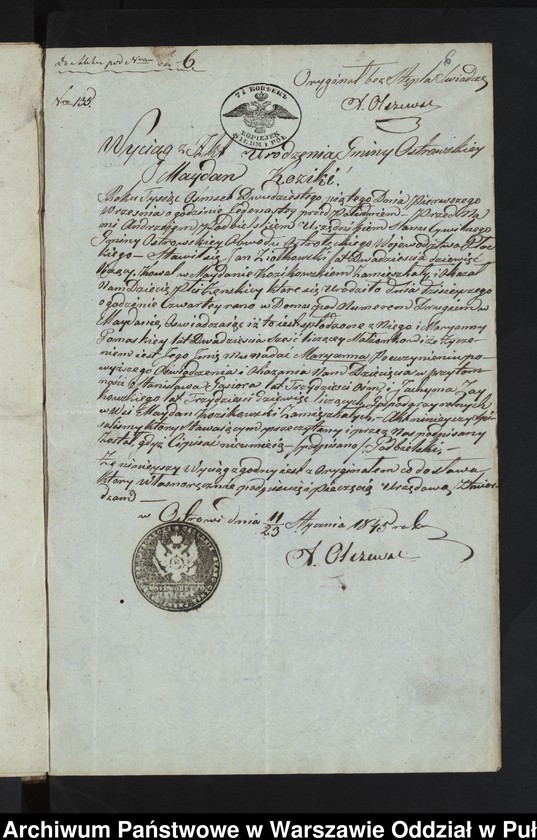 Do Aktu pod Nrem 6
6
Oryginał bez Stępla Świadczę
Nro 133.
A. Olszews
7½ КОПѢЕКЪ
KOPIEJEK
SIEDM I PÓŁ
Wyciąg z Akt Urodzenia Gminy Ostrowskiey
Maydan Koziki!
Roku Tysiąc Ośmset Dwudziestego piątego Dnia Pierwszego
Wrzesnia o godzinie Jedenastey przed Południem – Przed Na
mi Andrzejem Urzędnikiem Stanu Cywilnego
Gminy Ostrowskiey Obwodu Ostrołęckiego Woiewództwa Płoc
kiego – Stawił się Jan Ziołkowski lat Dwadzieścia dziewięć
liczący, w Maydanie Kozikowskim zamieszkały i okazał
Nam Dziecię płci Żenskiey które się urodziło dnia dzisieyszego
o godzinie Czwartey rano w Domu pod Numerem Drugiem w
Maydanie, Oswiadczaiąc iż to iest spłodzone z Niego i Maryanny
lat Dwadzieścia Sześć liczącey Małżonki i że życze
niem iest Jego Imię mu nadać Maryanna Po uczynieniu po
wyższego Oswiadczenia i Okazania Nam Dziecięcia w przytom
ności Stanisława Gąsiora lat Trzydzieści Ośm i Jachyma Zay
kowskiego lat Trzydzieści dziewięć liczących Gospodarzy rolnych
w Wsi Maydan Kozikowski zamieszkałych – Akt ninieyszy podpi
saliśmy który stawaiącym przeczytany i przez Nas podpisany
został gdyż Ci pisać nieumieią – (podpisano)
Że ninieyszy Wyciąg zgodny iest z Oryginałem co do słowa
który własnoręcznie podpisuię i pieczęcią Urzędową stwier
dzam –
w Ostrowi dnia 11/23 Stycznia 1845 roku
A. Olszews
Archiwum Państwowe w Warszawie Oddział w Puł